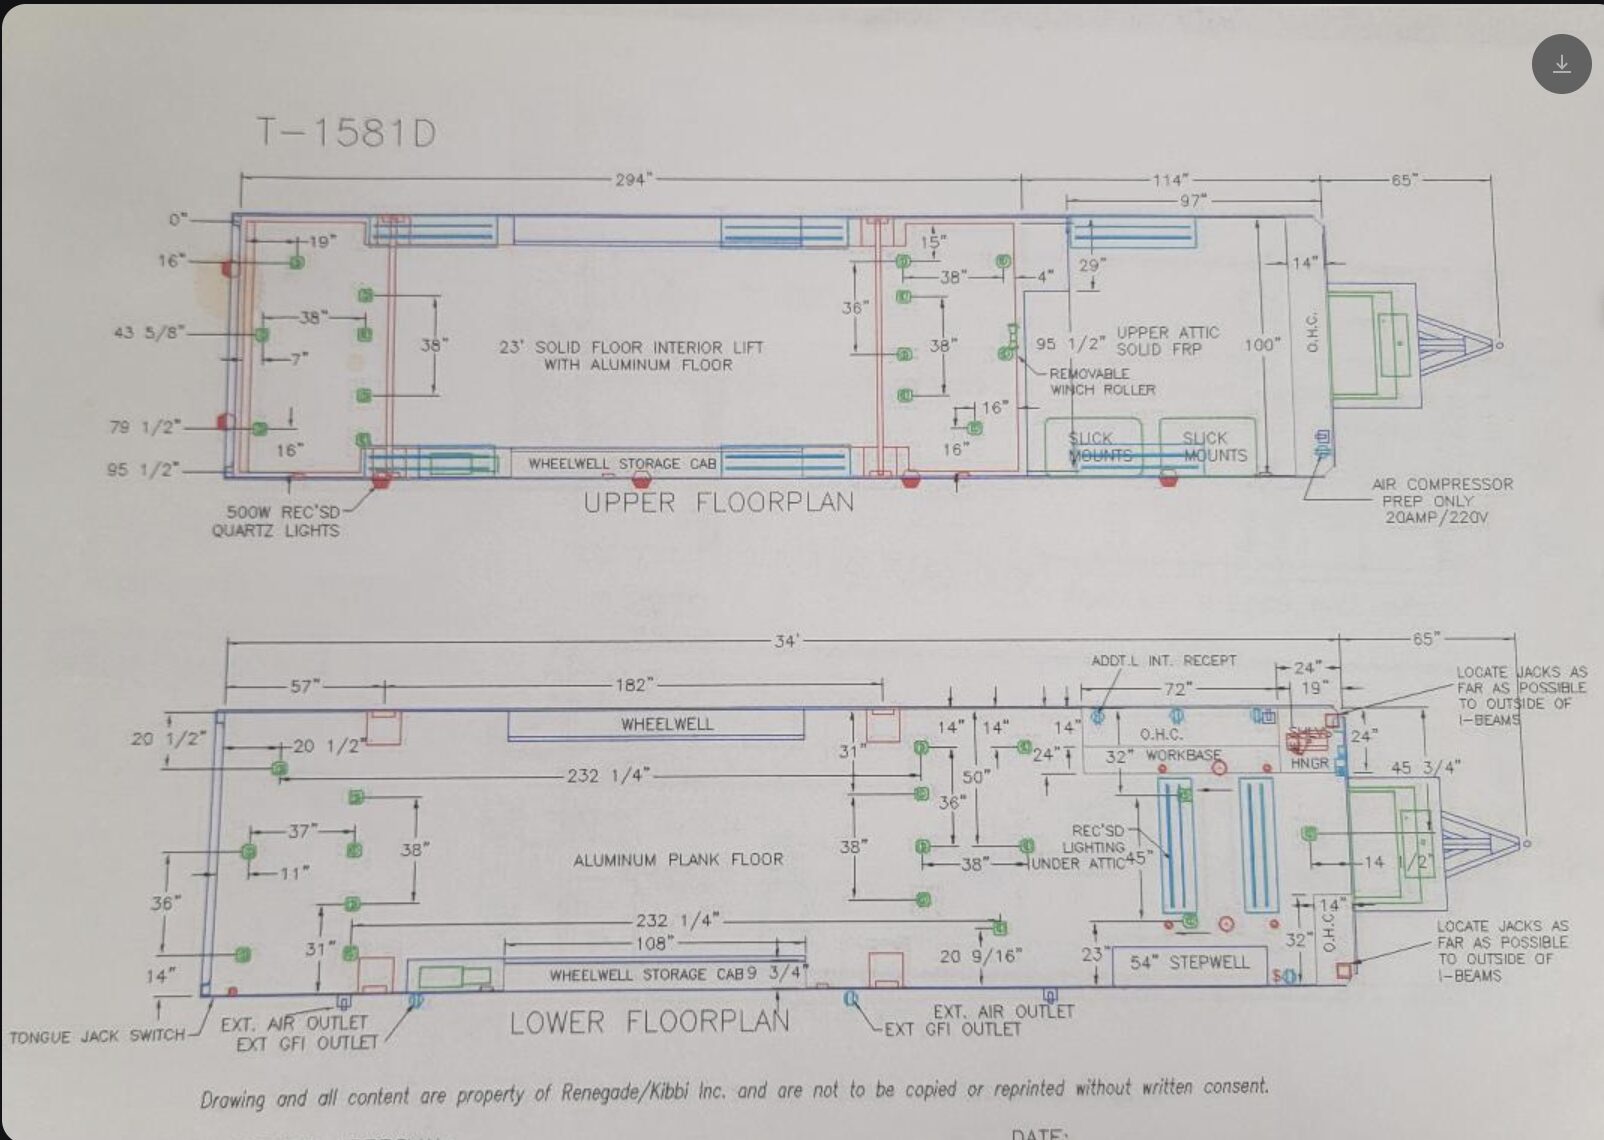 T-1581D
294"
114"
65"
97"
0"
19"
15"
16"
38"
4"
29"
14"
36"
43 5/8"
38"
7"
38"
23' SOLID FLOOR INTERIOR LIFT
WITH ALUMINUM FLOOR
38"
95 1/2"
UPPER ATTIC
SOLID FRP
100"
O.H.C.
REMOVABLE
WINCH ROLLER
16"
79 1/2"
16"
16"
SLICK
MOUNTS
SLICK
MOUNTS
95 1/2"
WHEELWELL STORAGE CAB
UPPER FLOORPLAN
500W REC'SD
QUARTZ LIGHTS
AIR COMPRESSOR
PREP ONLY
20AMP/220V
34'
65"
ADDT.L INT. RECEPT
24"
LOCATE JACKS AS
FAR AS POSSIBLE
TO OUTSIDE OF
I-BEAMS
57"
182"
72"
19"
WHEELWELL
14"
14"
14"
O.H.C.
20 1/2"
20 1/2"
31"
24"
32"
WORKBASE
HNGR
24"
45 3/4"
232 1/4"
50"
36"
37"
38"
ALUMINUM PLANK FLOOR
38"
38"
REC'SD
LIGHTING
UNDER ATTIC
45"
14 1/2"
11"
36"
14"
232 1/4"
31"
108"
20 9/16"
23"
32"
O.H.C
LOCATE JACKS AS
FAR AS POSSIBLE
TO OUTSIDE OF
I-BEAMS
14"
WHEELWELL STORAGE CAB
9 3/4"
54" STEPWELL
$
TONGUE JACK SWITCH
EXT. AIR OUTLET
EXT GFI OUTLET
LOWER FLOORPLAN
EXT. AIR OUTLET
EXT GFI OUTLET
Drawing and all content are property of Renegade/Kibbi Inc. and are not to be copied or reprinted without written consent.
DATE: